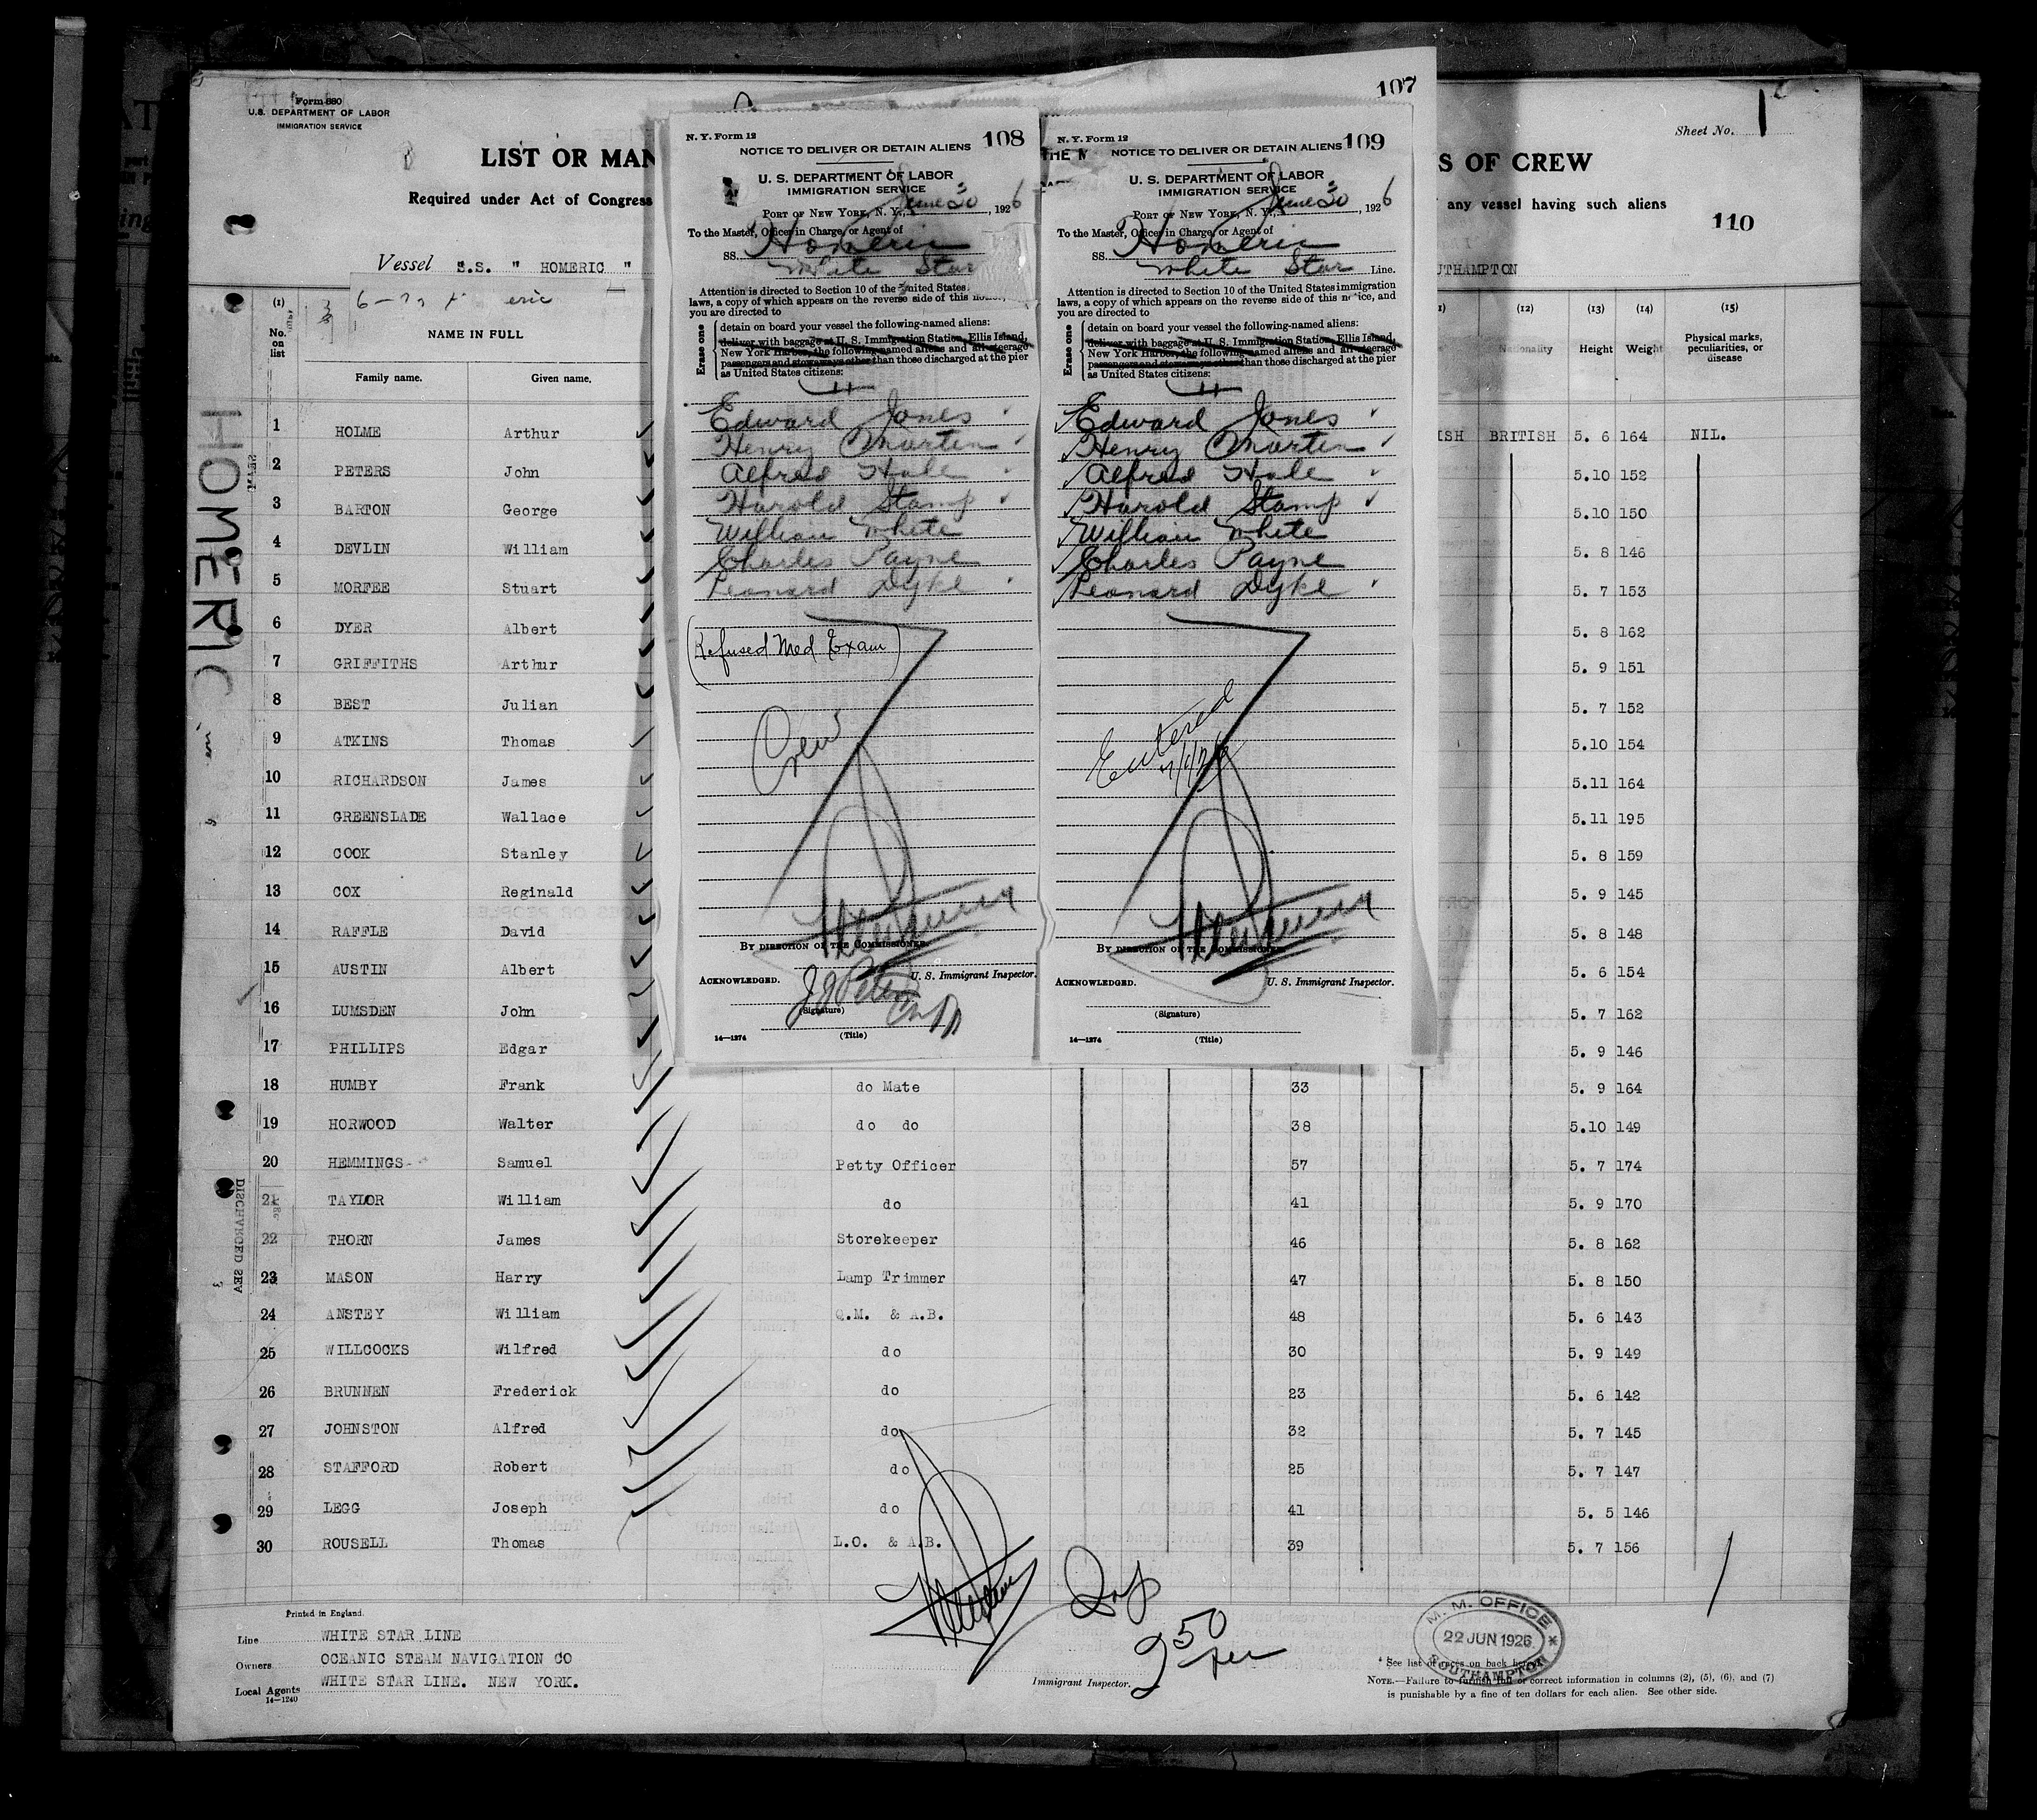 107
Form 680
U.S. DEPARTMENT OF LABOR
IMMIGRATION SERVICE
Sheet No. 1
LIST OR MAN
S OF CREW
Required under Act of Congress
any vessel having such aliens
110
Vessel S.S. " HOMERIC "
UTHAMPTON
eric
HOMERIC
(1)
No. on list
NAME IN FULL
Family name.
Given name.
(12) (13) (14) (15)
Nationality Height Weight Physical marks, peculiarities, or disease
1 HOLME Arthur ISH BRITISH 5. 6 164 NIL.
2 PETERS John 5.10 152
3 BARTON George 5.10 150
4 DEVLIN William 5. 8 146
5 MORFEE Stuart 5. 7 153
6 DYER Albert 5. 8 162
7 GRIFFITHS Arthur 5. 9 151
8 BEST Julian 5. 7 152
9 ATKINS Thomas 5.10 154
10 RICHARDSON James 5.11 164
11 GREENSLADE Wallace 5.11 195
12 COOK Stanley 5. 8 159
13 COX Reginald 5. 9 145
14 RAFFLE David 5. 8 148
15 AUSTIN Albert 5. 6 154
16 LUMSDEN John 5. 7 162
17 PHILLIPS Edgar 5. 9 146
18 HUMBY Frank do Mate 33 5. 9 164
19 HORWOOD Walter do do 38 5.10 149
20 HEMMINGS Samuel Petty Officer 57 5. 7 174
21 TAYLOR William do 41 5. 9 170
22 THORN James Storekeeper 46 5. 8 162
23 MASON Harry Lamp Trimmer 47 5. 8 150
24 ANSTEY William Q.M. & A.B. 48 5. 6 143
25 WILLCOCKS Wilfred do 30 5. 9 149
26 BRUNNEN Frederick do 23 5. 6 142
27 JOHNSTON Alfred do 32 5. 7 145
28 STAFFORD Robert do 25 5. 7 147
29 LEGG Joseph do 41 5. 5 146
30 ROUSELL Thomas L.O. & A.B. 39 5. 7 156
DISCHARGED SEA
N. Y. Form 12
108
NOTICE TO DELIVER OR DETAIN ALIENS
U. S. DEPARTMENT OF LABOR
IMMIGRATION SERVICE
PORT OF NEW YORK, N. Y., June 30, 1926
To the Master, Officer in Charge, or Agent of
SS. Homeric
White Star
Attention is directed to Section 10 of the United States
laws, a copy of which appears on the reverse side of this
you are directed to
Erase one
detain on board your vessel the following-named aliens:
deliver with baggage at U. S. Immigration Station, Ellis Island,
New York Harbor, the following-named aliens and all steerage
passengers and stowaways other than those discharged at the pier
as United States citizens:
Edward Jones
Henry Martin
Alfred Hale
Harold Stamp
William White
Charles Payne
Leonard Dyke
(Refused Med Exam)
Crew
BY DIRECTION OF THE COMMISSIONER.
U. S. Immigrant Inspector.
ACKNOWLEDGED.
(Signature)
14—1274
(Title)
N. Y. Form 12
109
NOTICE TO DELIVER OR DETAIN ALIENS
U. S. DEPARTMENT OF LABOR
IMMIGRATION SERVICE
PORT OF NEW YORK, N. Y., June 30, 1926
To the Master, Officer in Charge, or Agent of
SS. Homeric
White Star Line.
Attention is directed to Section 10 of the United States immigration
laws, a copy of which appears on the reverse side of this notice, and
you are directed to
Erase one
detain on board your vessel the following-named aliens:
deliver with baggage at U. S. Immigration Station, Ellis Island,
New York Harbor, the following-named aliens and all steerage
passengers and stowaways other than those discharged at the pier
as United States citizens:
Edward Jones
Henry Martin
Alfred Hale
Harold Stamp
William White
Charles Payne
Leonard Dyke
Entered
BY DIRECTION OF THE COMMISSIONER.
U. S. Immigrant Inspector.
ACKNOWLEDGED.
(Signature)
14—1274
(Title)
Printed in England.
Line WHITE STAR LINE
Owners OCEANIC STEAM NAVIGATION CO
Local Agents WHITE STAR LINE. NEW YORK.
14—1240
Immigrant Inspector.
M. M. OFFICE
22 JUN 1926
SOUTHAMPTON
* See list of races on back hereof.
NOTE.—Failure to furnish full or correct information in columns (2), (5), (6), and (7)
is punishable by a fine of ten dollars for each alien. See other side.